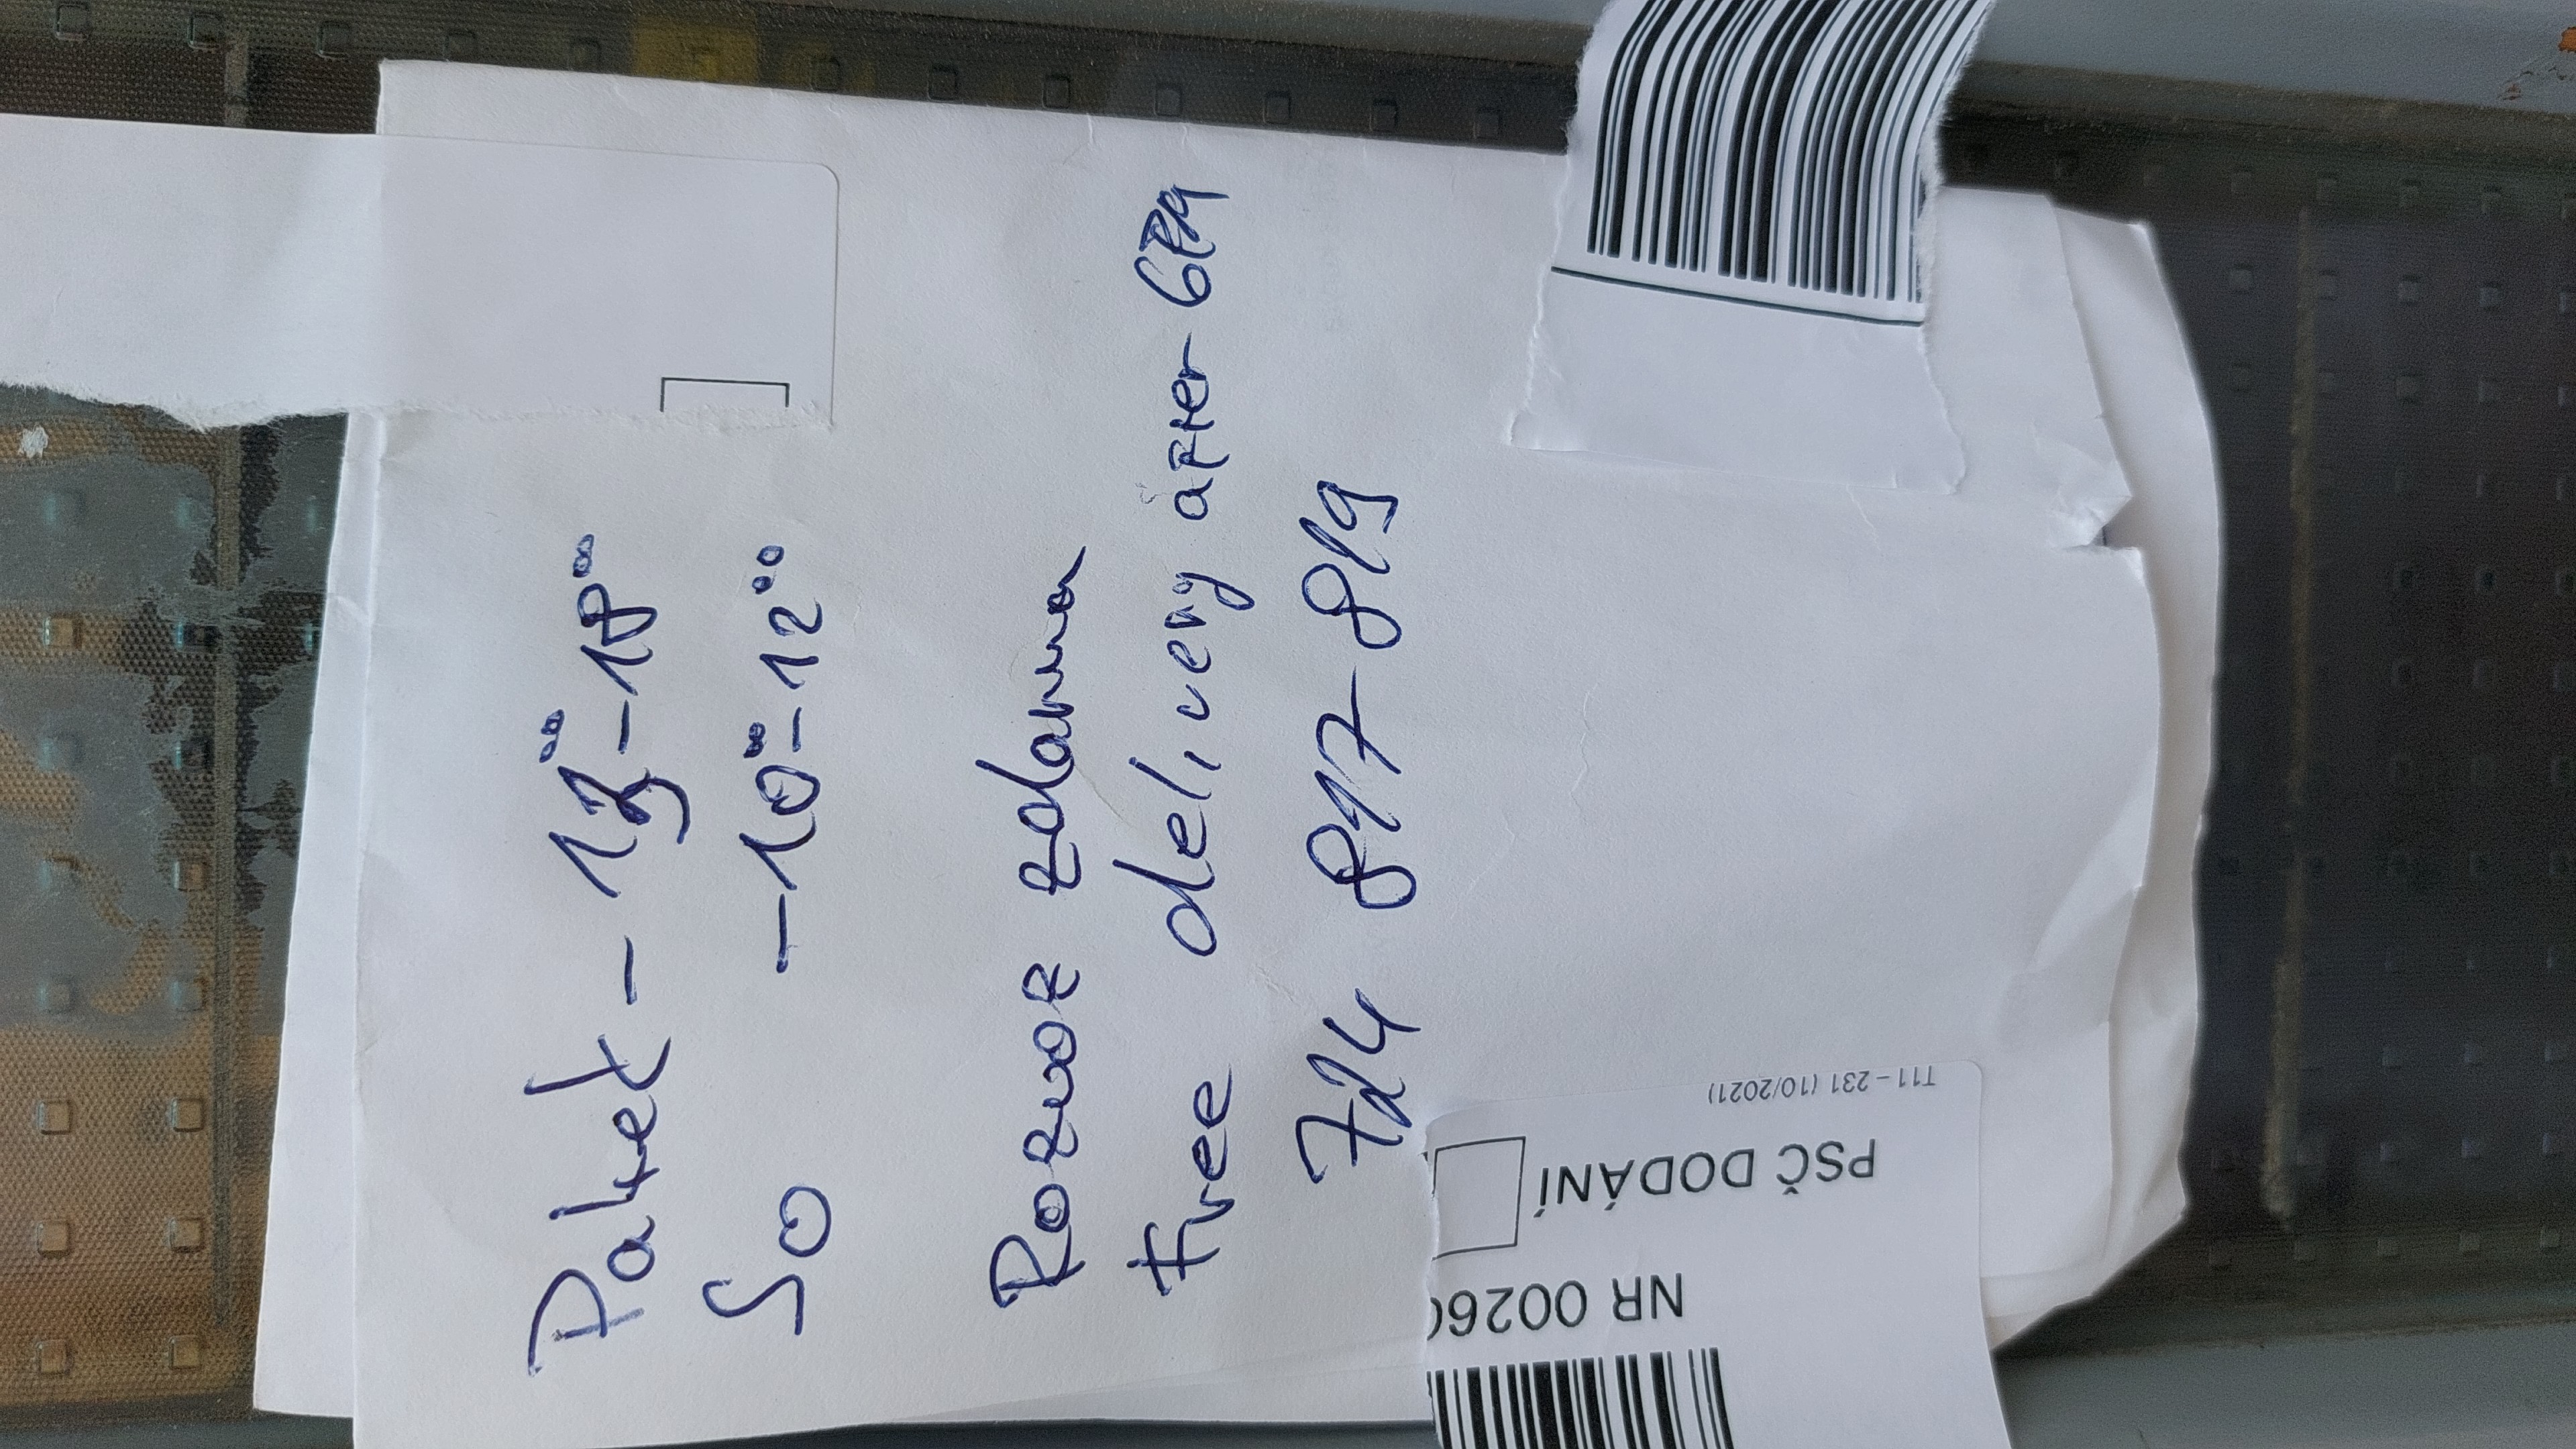 Pátek - 13⁰⁰-18⁰⁰
SO -10⁰⁰-12⁰⁰
Rozvoz zdarma
Free delivery after 6PM
724 817 819
T11 – 231 (10/2021)
PSČ DODÁNÍ
NR 0026